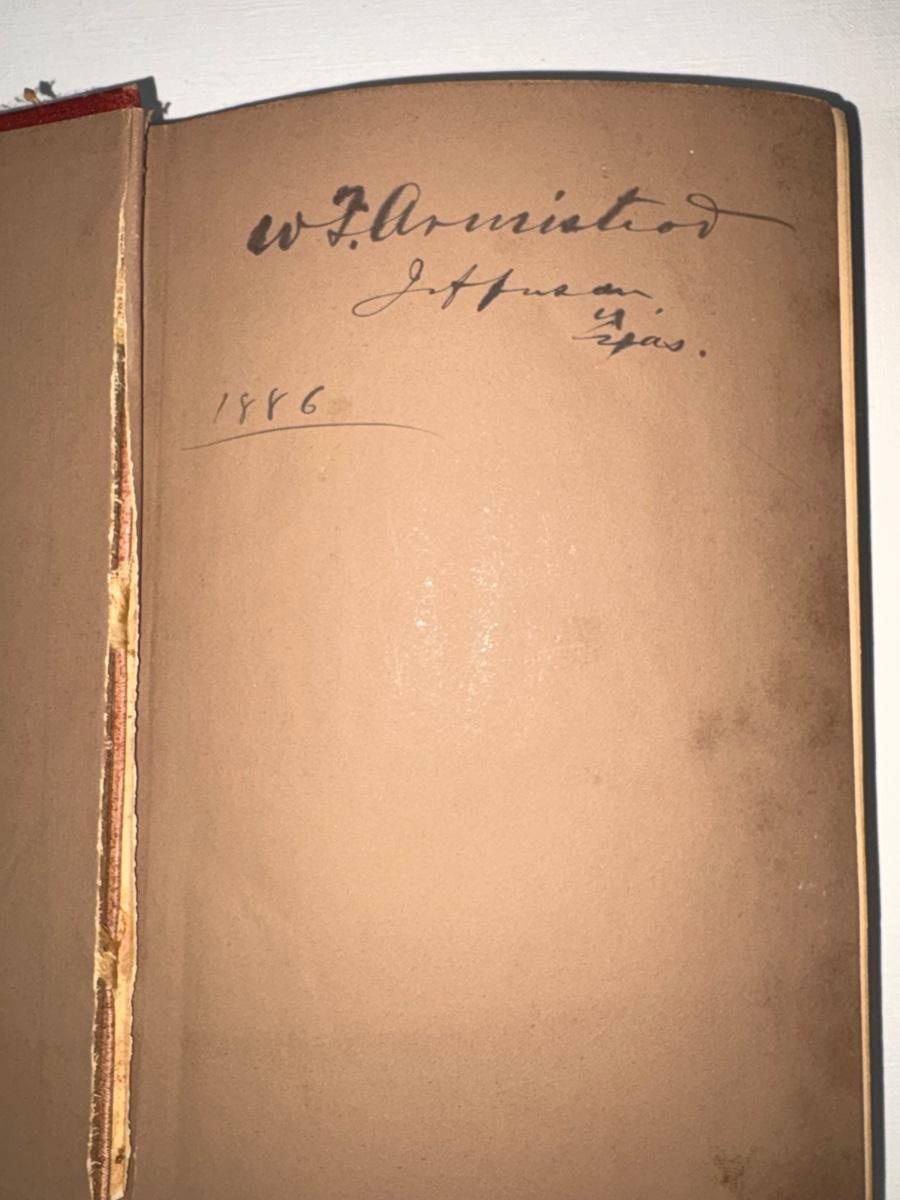 W. F. Armistead
Jefferson,
Texas.
1886